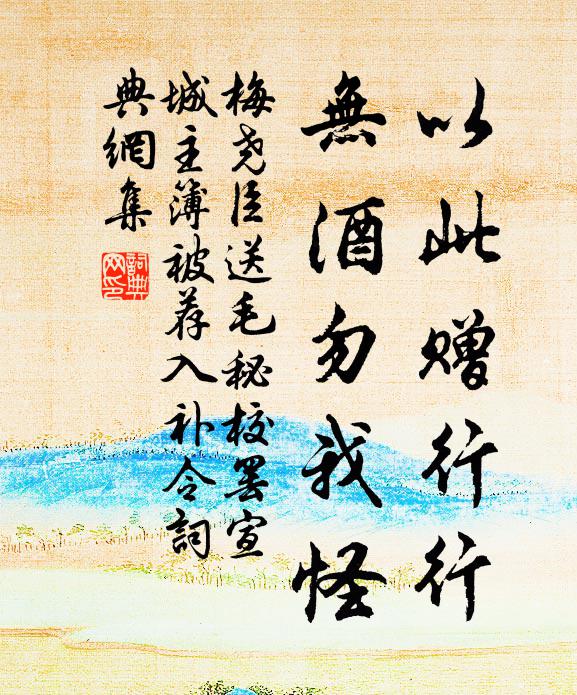 以此赠行行
無酒勿我怪
梅尧臣送毛秘校罢宣
城主簿被荐入补令詞
典網集
詞典
网印